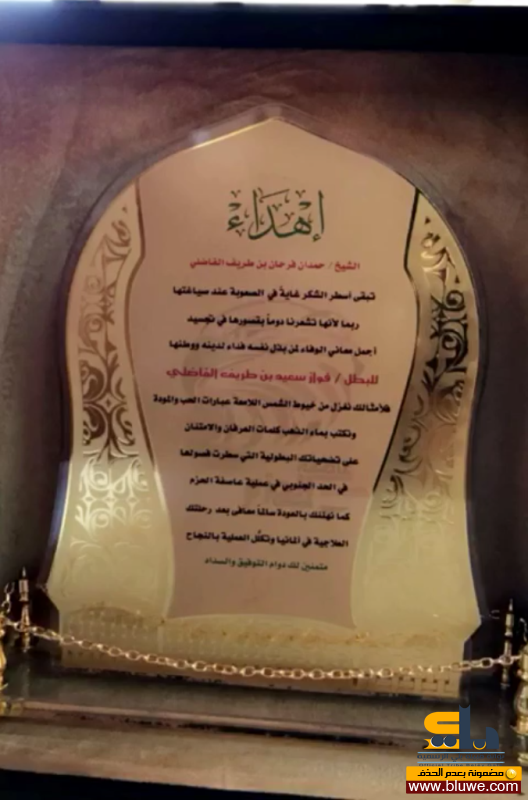 إهْدَاءْ
الشيخ / حمدان فرحان بن طريف الفاضلي
تبقى أسطر الشكر غايةً في الصعوبة عند صياغتها
ربما لأنها تشعرنا دوماً بقصورها في تجسيد
أجمل معاني الوفاء لمن بذل نفسه فداء لدينه ووطنها
للبطل / فواز سعيد بن طريف الفاضلي
فلأمثالك نغزل من خيوط الشمس اللامعة عبارات الحب والمودة
ونكتب بماء الذهب كلمات العرفان والامتنان
على تضحياتك البطولية التي سطرت فصولها
في الحد الجنوبي في عملية عاصفة الحزم
كما نهنئك بالعودة سالماً معافى بعد رحلتك
العلاجية في ألمانيا وتكلُل العملية بالنجاح
متمنين لك دوام التوفيق والسداد
مضمونة بعدم الحذف
www.bluwe.com